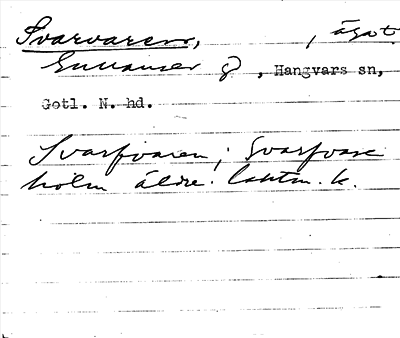 Svarvaren, , ägot.
Gunnauser g , Hangvars sn,
Gotl. N. hd.
Svarfvaren; Svarfvare
holm äldre lantm. k.